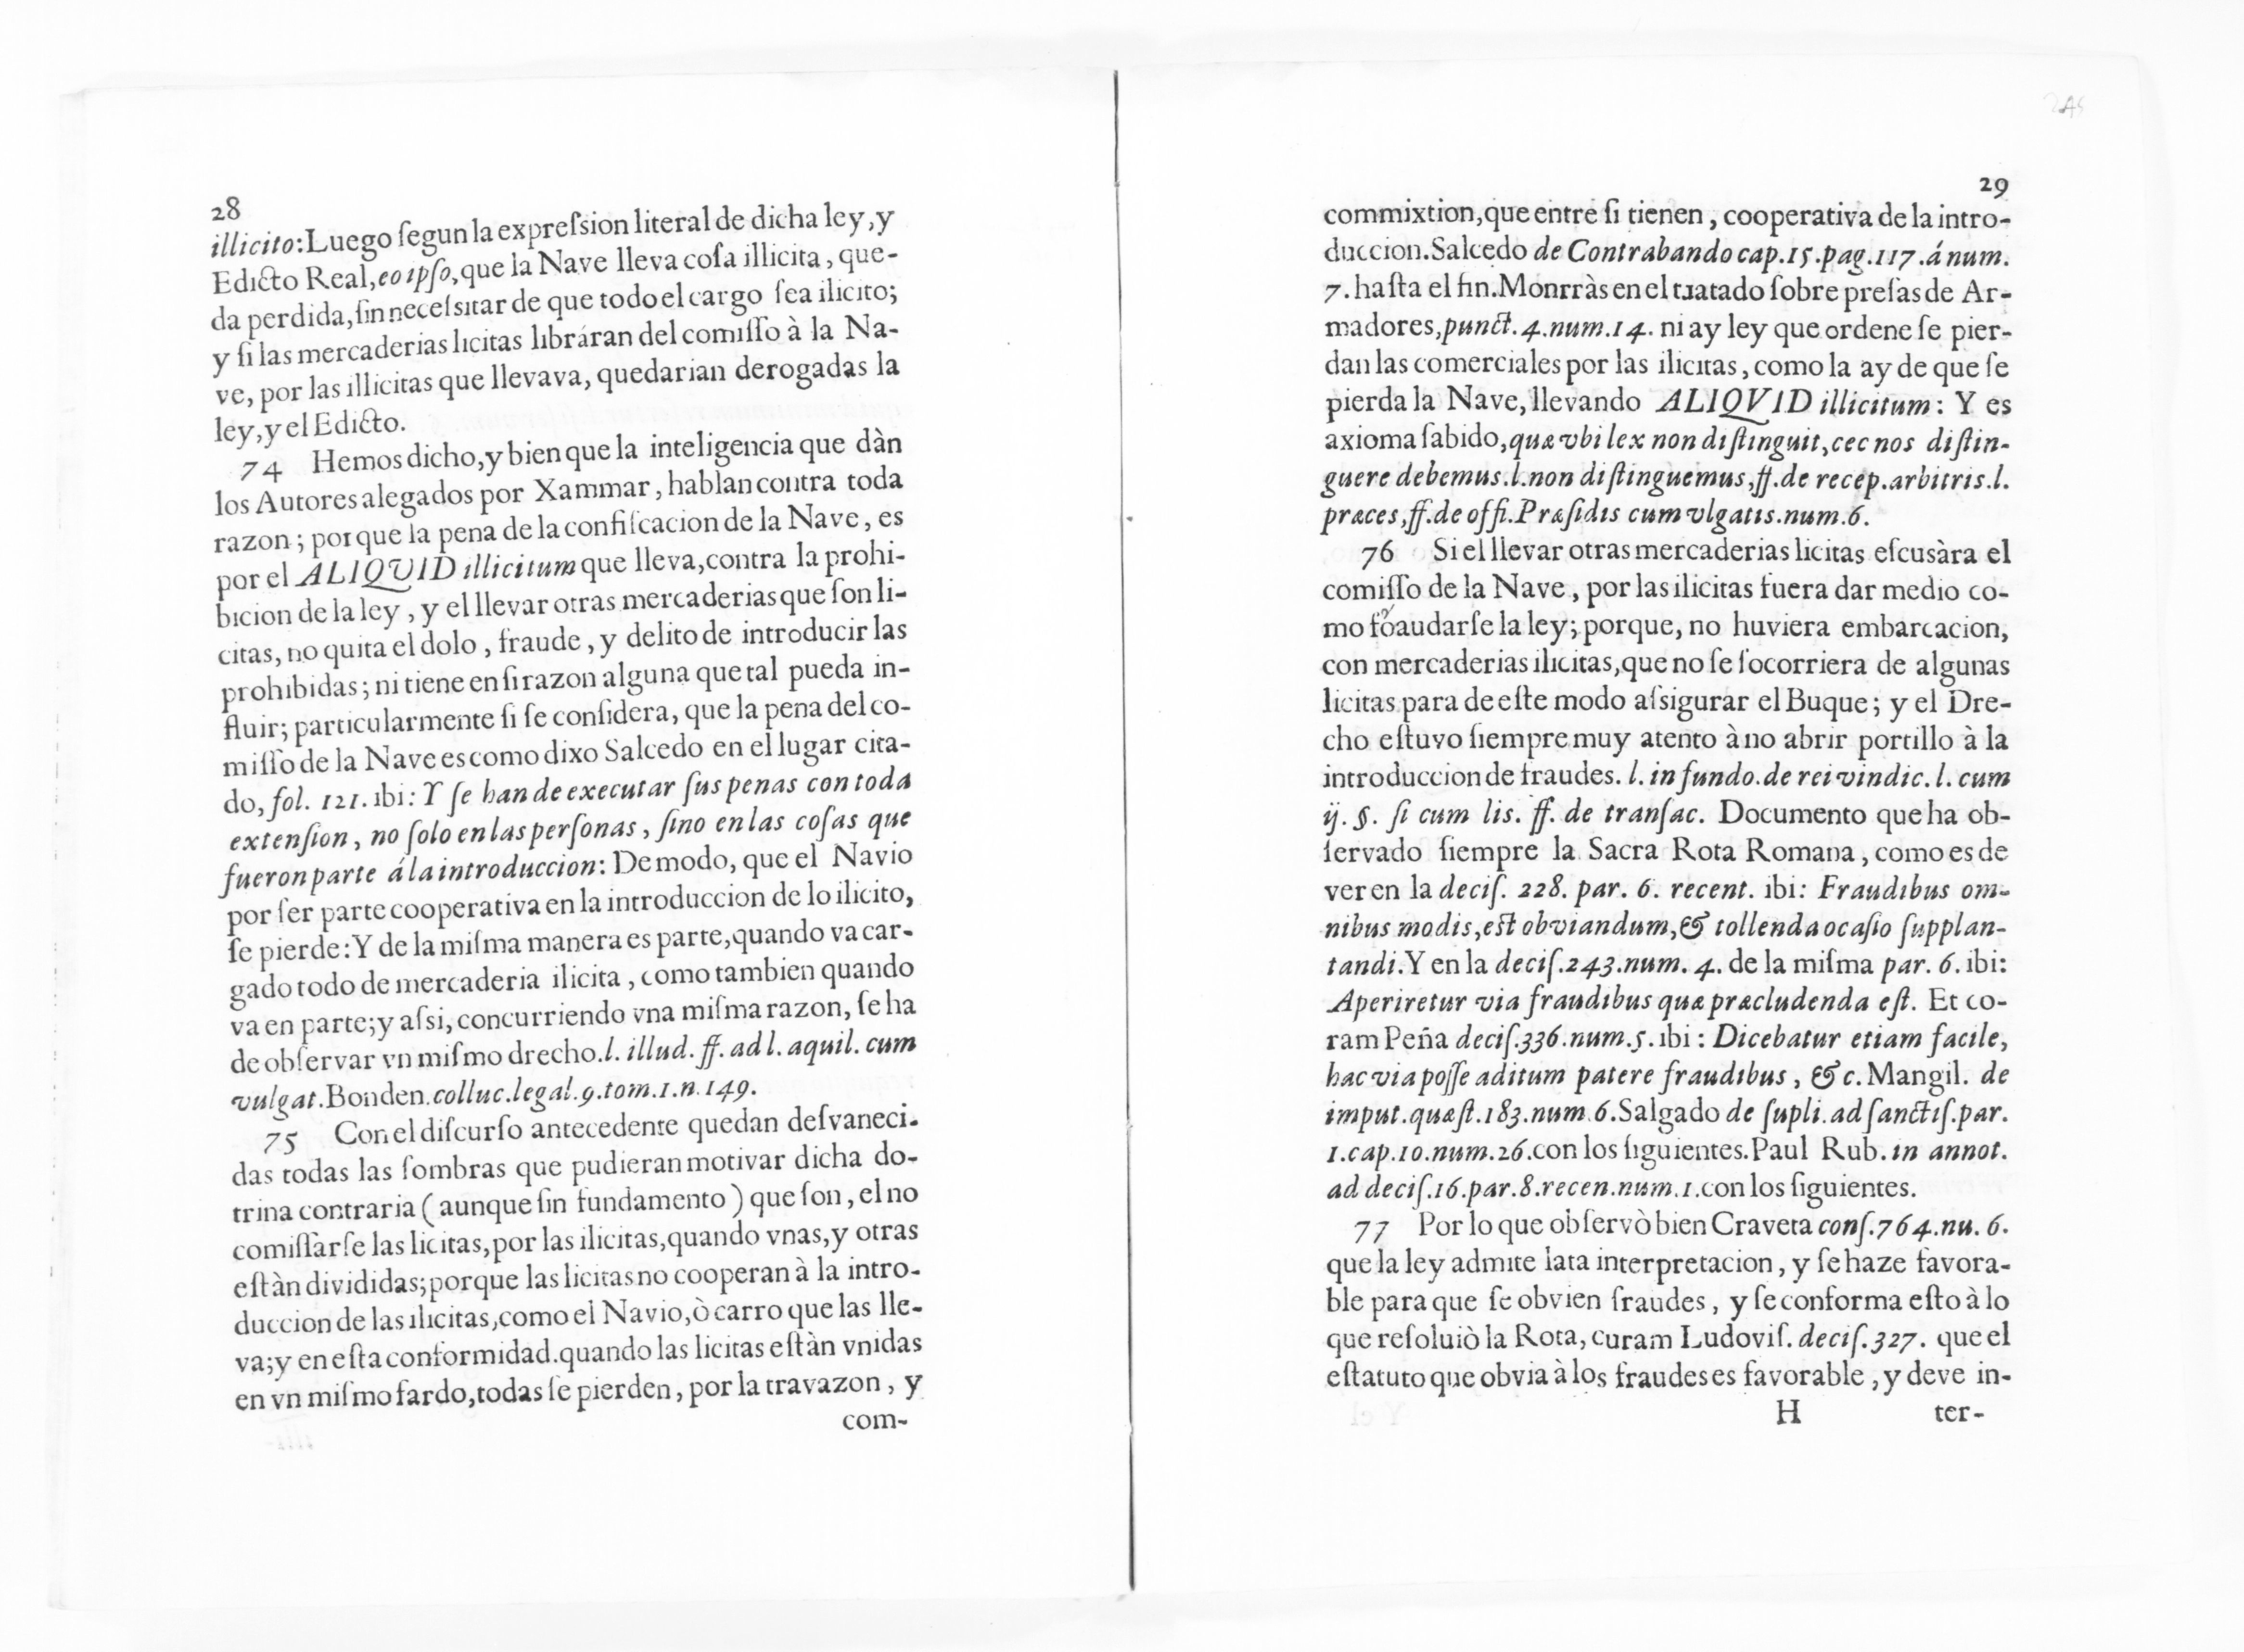 28
illicito: Luego ſegun la expreſsion literal de dicha ley, y
Edicto Real, eo ipſo, que la Nave lleva coſa illicita, que-
da perdida, ſin neceſsitar de que todo el cargo ſea ilicito;
y ſi las mercaderias licitas libráran del comiſſo à la Na-
ve, por las illicitas que llevava, quedarian derogadas la
ley, y el Edicto.
74 Hemos dicho, y bien que la inteligencia que dàn
los Autores alegados por Xammar, hablan contra toda
razon; porque la pena de la confiſcacion de la Nave, es
por el ALIQUID illicitum que lleva, contra la prohi-
bicion de la ley, y el llevar otras mercaderias que ſon li-
citas, no quita el dolo, fraude, y delito de introducir las
prohibidas; ni tiene en ſi razon alguna que tal pueda in-
fluir; particularmente ſi ſe conſidera, que la pena del co-
miſſo de la Nave es como dixo Salcedo en el lugar cita-
do, fol. 121. ibi: Y ſe han de executar ſus penas con toda
extenſion, no ſolo en las perſonas, ſino en las coſas que
fueron parte á la introduccion: De modo, que el Navio
por ſer parte cooperativa en la introduccion de lo ilicito,
ſe pierde: Y de la miſma manera es parte, quando va car-
gado todo de mercaderia ilicita, como tambien quando
va en parte; y aſsi, concurriendo vna miſma razon, ſe ha
de obſervar vn miſmo drecho. l. illud. ff. ad l. aquil. cum
vulgat. Bonden. colluc. legal. 9. tom. 1. n. 149.
75 Con el diſcurſo antecedente quedan deſvaneci-
das todas las ſombras que pudieran motivar dicha do-
trina contraria (aunque ſin fundamento) que ſon, el no
comiſſarſe las licitas, por las ilicitas, quando vnas, y otras
eſtàn divididas; porque las licitas no cooperan à la intro-
duccion de las ilicitas, como el Navio, ò carro que las lle-
va; y en eſta conformidad. quando las licitas eſtàn vnidas
en vn miſmo fardo, todas ſe pierden, por la travazon, y
com-
29
commixtion, que entre ſi tienen, cooperativa de la intro-
duccion. Salcedo de Contrabando cap. 15. pag. 117. á num.
7. haſta el fin. Monrràs en el tratado ſobre preſas de Ar-
madores, punct. 4. num. 14. ni ay ley que ordene ſe pier-
dan las comerciales por las ilicitas, como la ay de que ſe
pierda la Nave, llevando ALIQVID illicitum: Y es
axioma ſabido, quæ vbi lex non diſtinguit, cec nos diſtin-
guere debemus. l. non diſtinguemus, ff. de recep. arbitris. l.
præces, ff. de offi. Præſidis cum vlgatis. num. 6.
76 Si el llevar otras mercaderias licitas eſcusàra el
comiſſo de la Nave, por las ilicitas fuera dar medio co-
mo foaudarſe la ley; porque, no huviera embarcacion,
con mercaderias ilicitas, que no ſe ſocorriera de algunas
licitas para de eſte modo aſsigurar el Buque; y el Dre-
cho eſtuvo ſiempre muy atento à no abrir portillo à la
introduccion de fraudes. l. in fundo. de rei vindic. l. cum
ij. §. ſi cum lis. ff. de tranſac. Documento que ha ob-
ſervado ſiempre la Sacra Rota Romana, como es de
ver en la deciſ. 228. par. 6. recent. ibi: Fraudibus om-
nibus modis, eſt obviandum, & tollenda ocaſio ſupplan-
tandi. Y en la deciſ. 243. num. 4. de la miſma par. 6. ibi:
Aperiretur via fraudibus quæ præcludenda eſt. Et co-
ram Peña deciſ. 336. num. 5. ibi: Dicebatur etiam facile,
hac via poſſe aditum patere fraudibus, &c. Mangil. de
imput. quæſt. 183. num. 6. Salgado de ſupli. ad ſanctiſ. par.
1. cap. 10. num. 26. con los ſiguientes. Paul Rub. in annot.
ad deciſ. 16. par. 8. recen. num. 1. con los ſiguientes.
77 Por lo que obſervò bien Craveta conſ. 764. nu. 6.
que la ley admite lata interpretacion, y ſe haze favora-
ble para que ſe obvien fraudes, y ſe conforma eſto à lo
que reſoluiò la Rota, curam Ludoviſ. deciſ. 327. que el
eſtatuto que obvia à los fraudes es favorable, y deve in-
H ter-